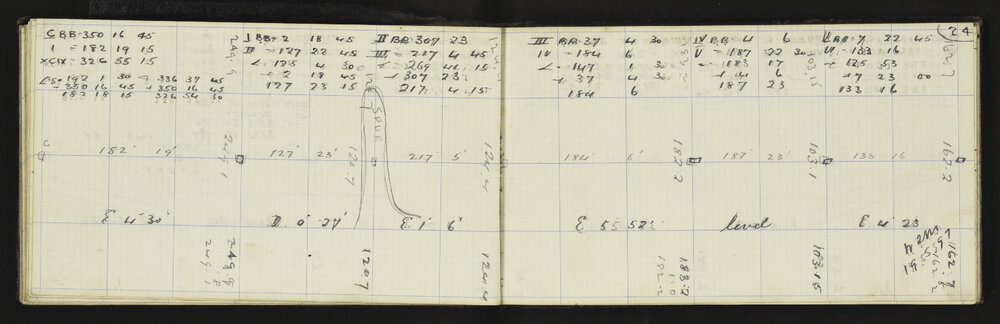 C BB-350 16 45
I = 182 19 15
XCIX = 326 55 15
LS = 192 1 30 336 37 45
+350 16 45 +350 16 45
182 18 15 326 54 30
I BB-2 18 45
II = 127 22 45
L 125 4 30
+ 2 18 45
127 23 15
II BB 307 23
III = 217 4 45
L 269 41 15
+ 307 23
217 4 15
III BB-37 4 30
IV = 184 6
L - 147 1 30
+ 37 4 30
184 6
IV BB-4 6
V = 187 22 30
L - 183 17
+ 4 6
187 23
V BB-7 22 45
VI - 133 16
L - 125 53
+ 7 23 00
133 16
24
C
182° 19'
249.1
127° 23'
120.7
SPUR
217° 5'
184° 6'
182.2
187° 23'
103.1
133 16
162.2
E. 4° 30'
D. 0° 27'
E. 1° 6'
level
E. 4° 23
249.9
249.1
120.7
183.2
182.2
103.15
162.7